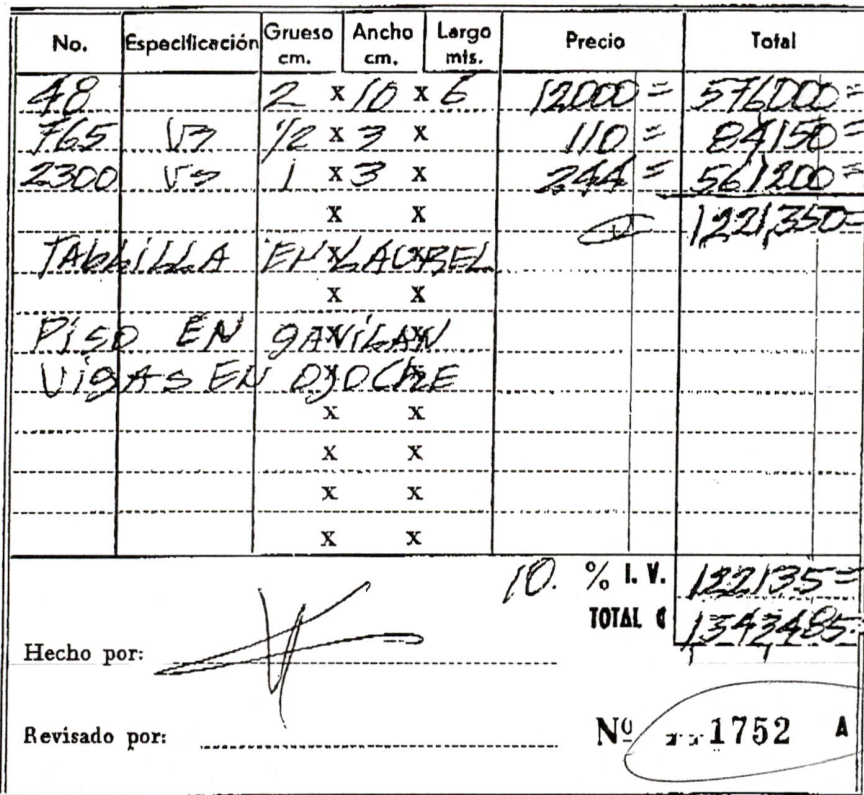 No. Especificación Grueso cm. Ancho cm. Largo mts. Precio Total
48 2 x 10 x 6 12000= 576000=
765 Vs 1/2 x 3 x 110= 84150=
2300 Vs 1 x 3 x 244= 561200=
x x 1,221,350=
TABLILLA EN LAUREL
x x
PISO EN gAViLAN
VigAS EN OJOCHE
x x
x x
x x
x x
10. % I. V. 122135=
TOTAL ¢ 1,343,485=
Hecho por:
Revisado por: Nº 1752 A